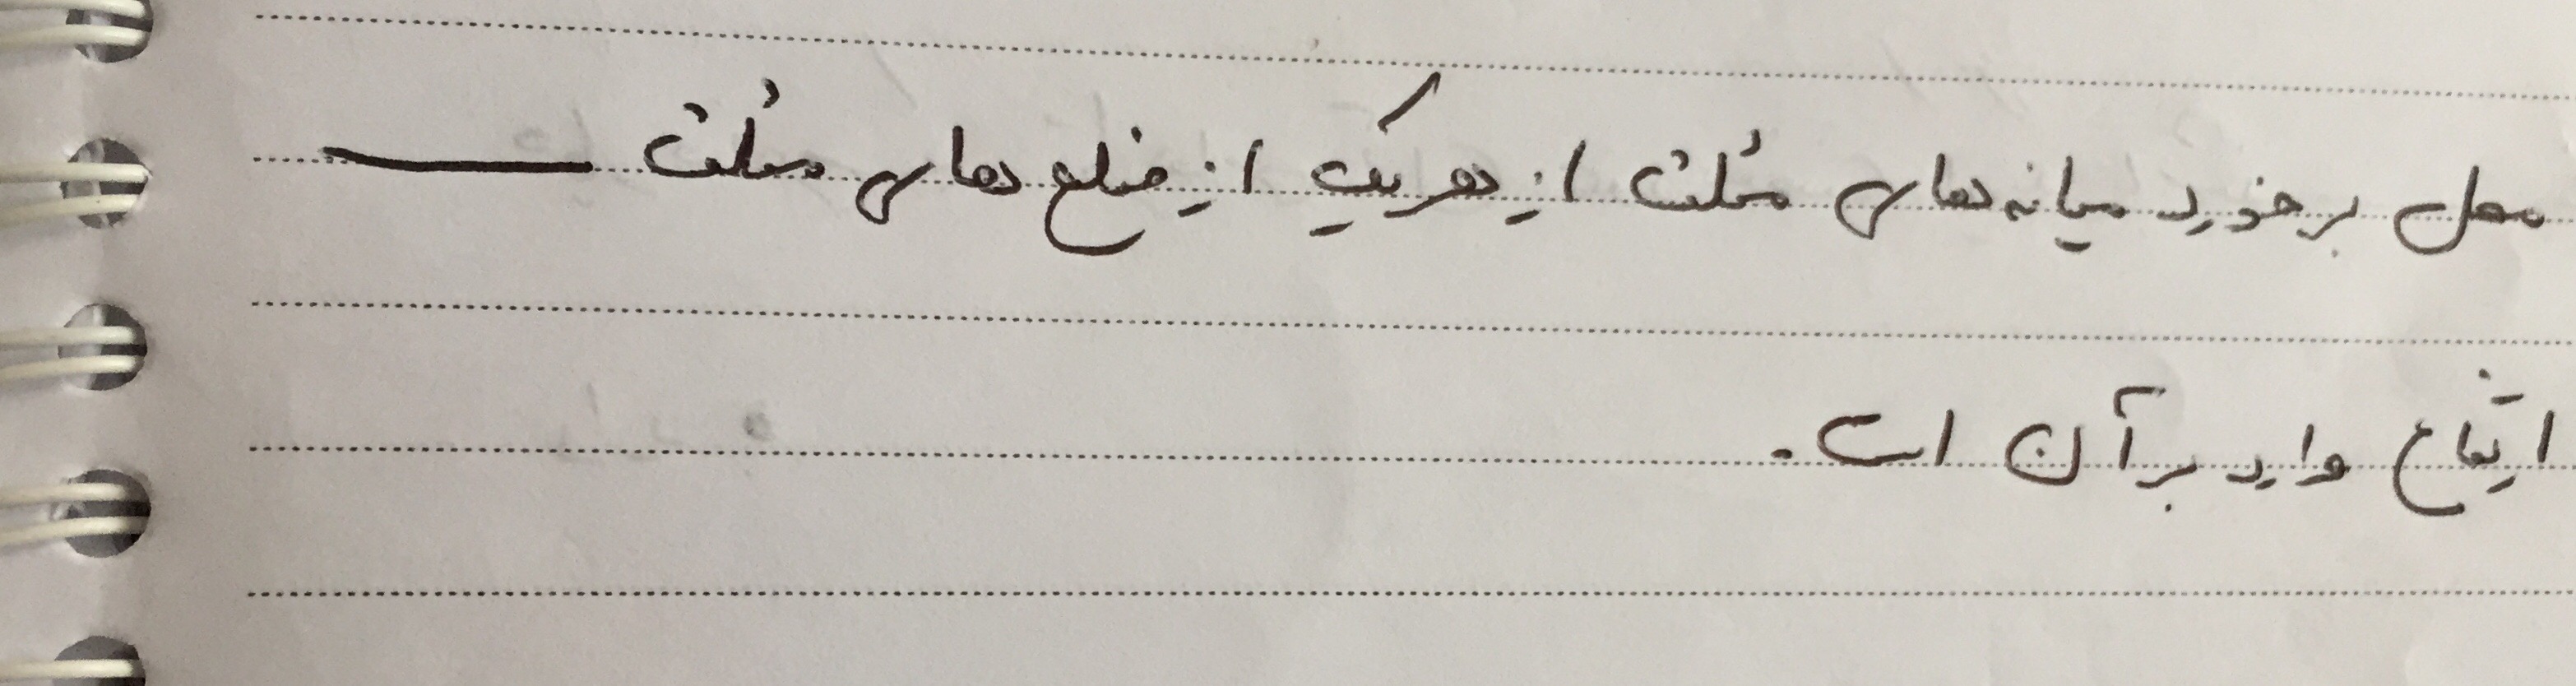 محل برخورد میانه‌های مثلث از هریک از ضلع‌های مثلث ـــــــــ
ارتفاع وارد بر آن است.